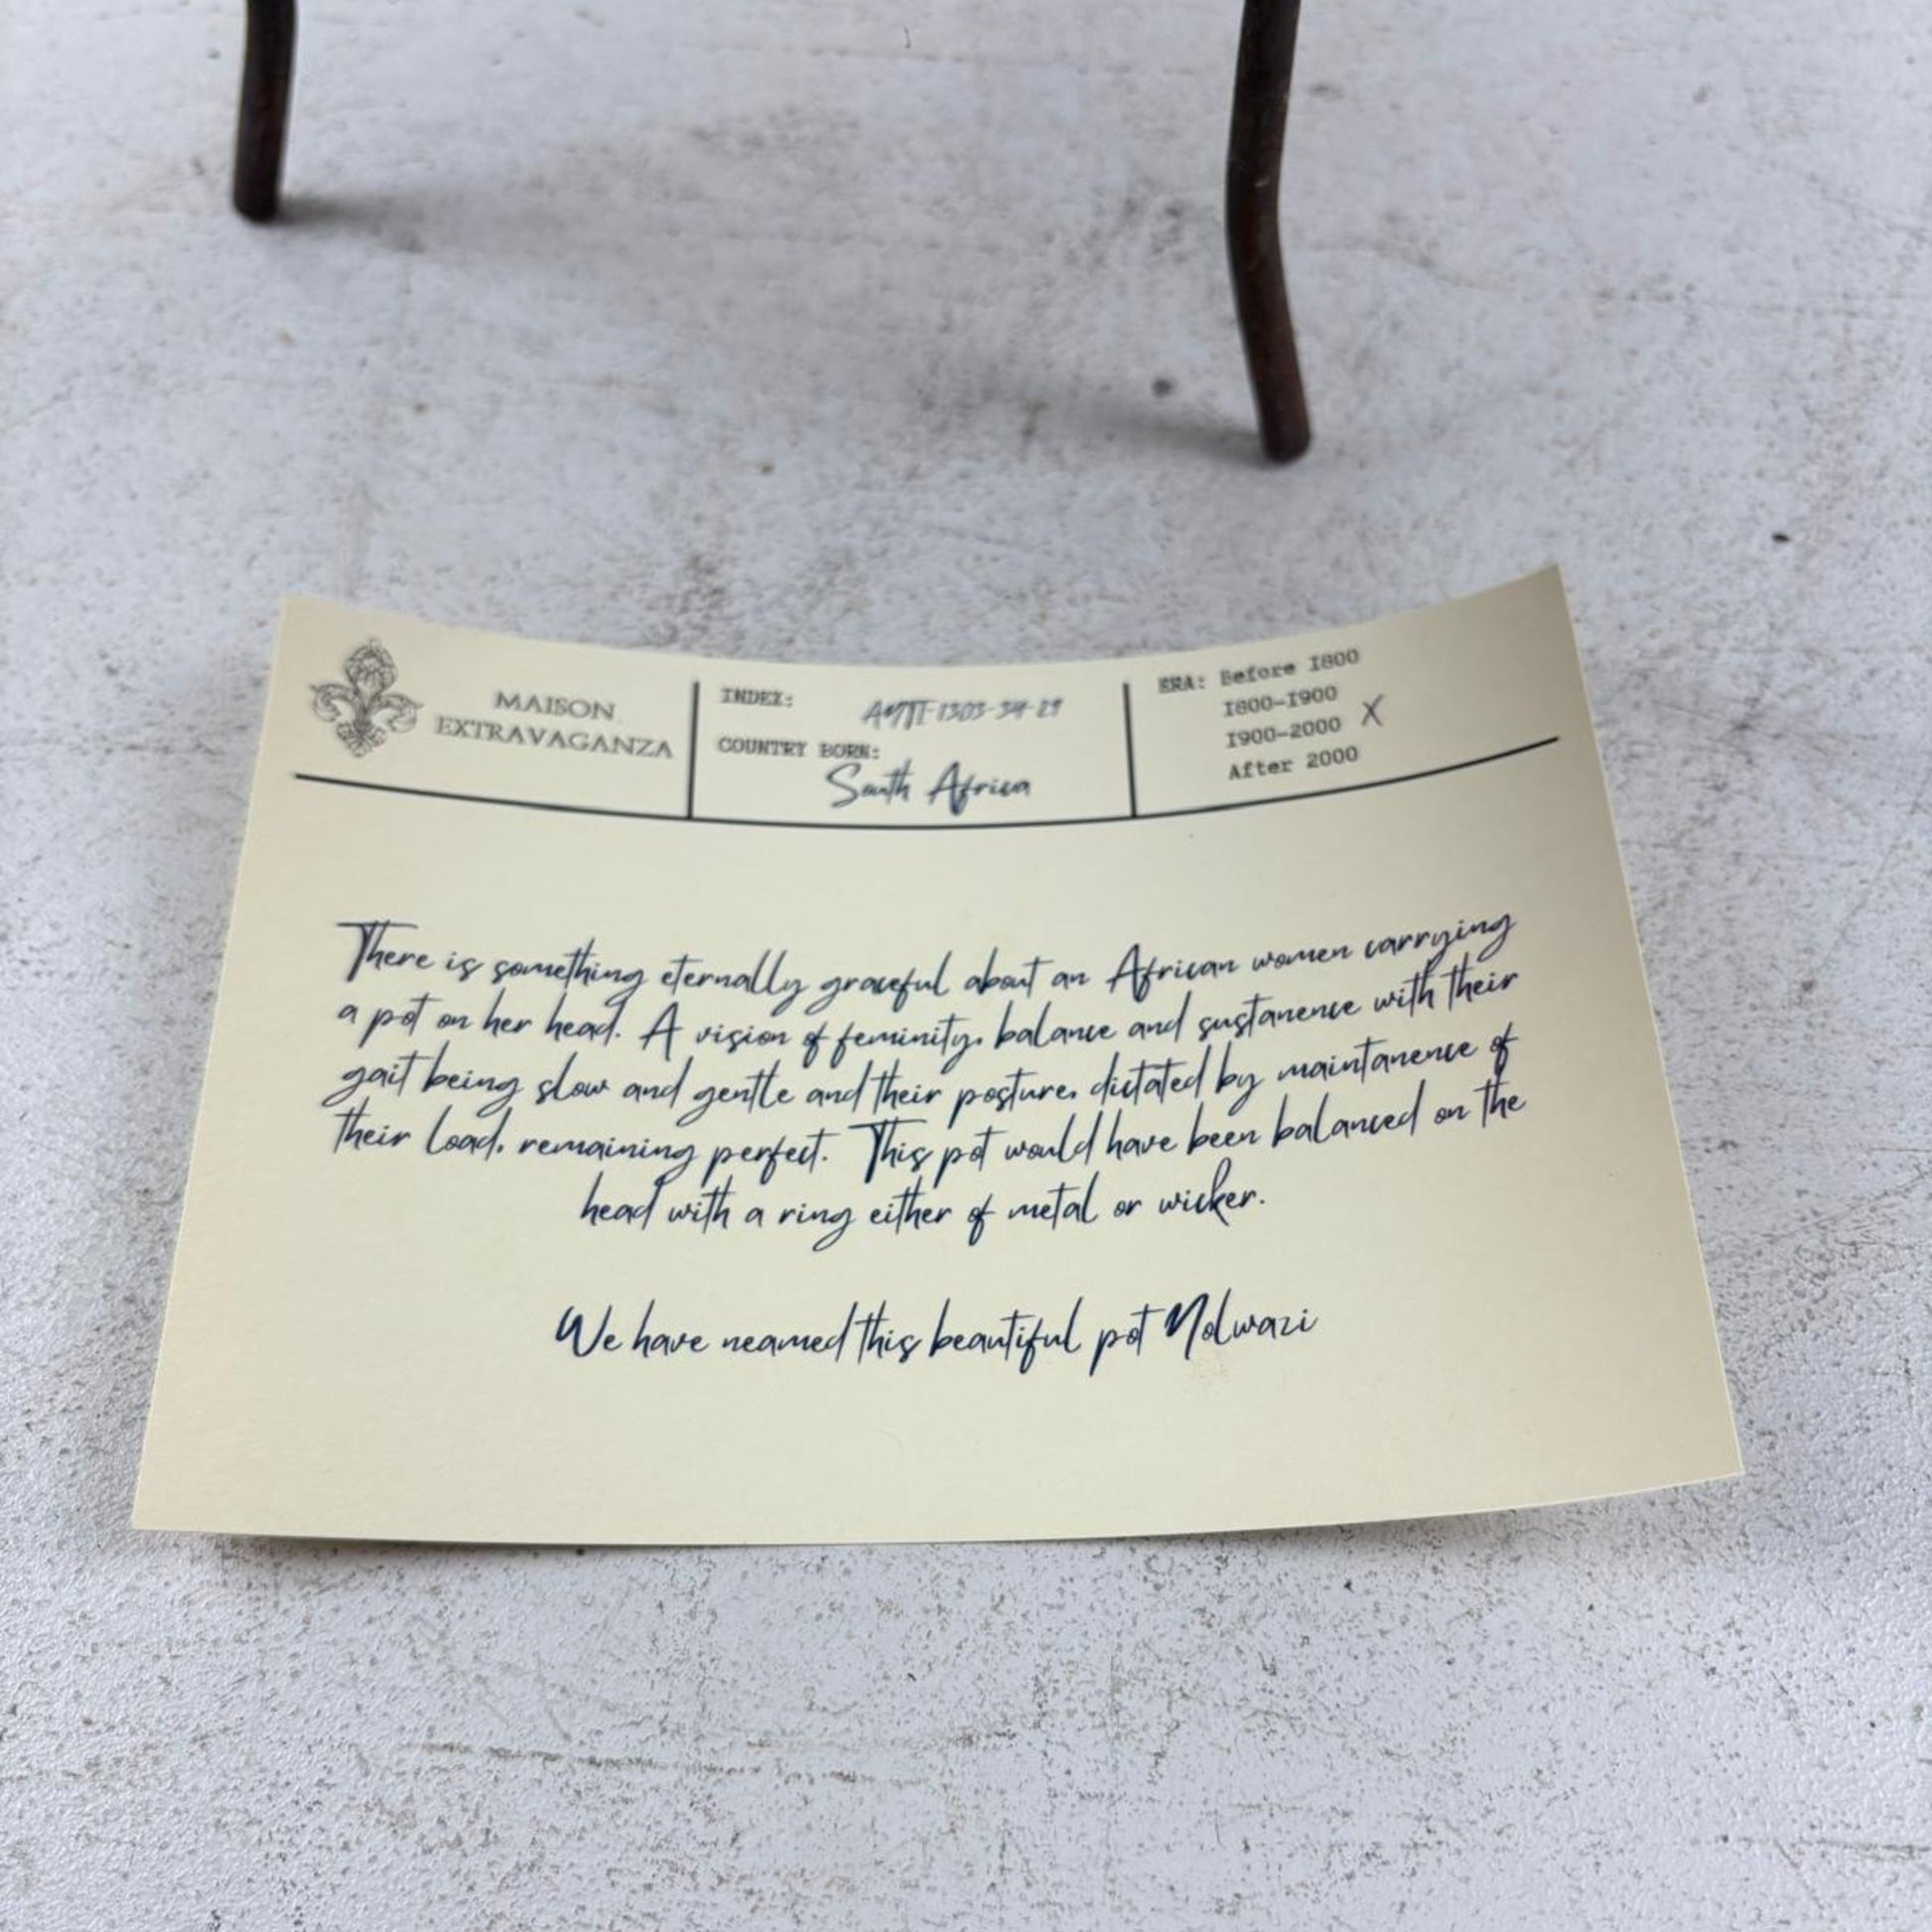 MAISON
EXTRAVAGANZA
INDEX:
COUNTRY BORN:
South Africa
ERA: Before 1800
1800-1900
1900-2000 X
After 2000
There is something eternally graceful about an African women carrying
a pot on her head. A vision of feminity, balance and sustanence with their
gait being slow and gentle and their posture, dictated by maintanence of
their load, remaining perfect. This pot would have been balanced on the
head with a ring either of metal or wicker.
We have neamed this beautiful pot Nolwazi